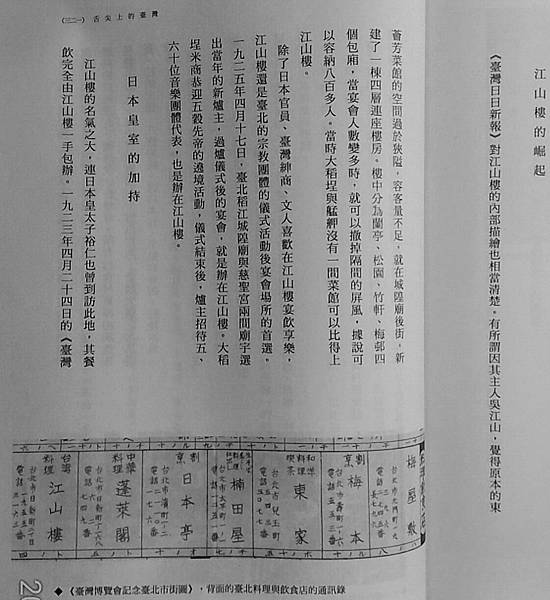 江山樓的崛起
《臺灣日日新報》對江山樓的內部描繪也相當清楚。有所謂因其主人吳江山，覺得原本的東
薈芳菜館的空間過於狹隘，容客量不足，就在城隍廟後街，新
建了一棟四層連座樓房。樓中分為蘭亭、松園、竹軒、梅邨四
個包廂，當宴會人數變多時，就可以撤掉隔間的屏風，據說可
以容納八百多人。當時大稻埕與艋舺沒有一間菜館可以比得上
江山樓。
除了日本官員、臺灣紳商、文人喜歡在江山樓宴飲享樂，
江山樓還是臺北的宗教團體的儀式活動後宴會場所的首選。
一九二五年四月十七日，臺北稻江城隍廟與慈聖宮兩間廟宇選
出當年的新爐主，過爐儀式後的宴會，就是辦在江山樓。大稻
埕米商恭迎五穀先帝的遶境活動，儀式結束後，爐主招待五、
六十位音樂團體代表，也是辦在江山樓。
日本皇室的加持
江山樓的名氣之大，連日本皇太子裕仁也曾到訪此地，其餐
飲完全由江山樓一手包辦。一九二三年四月二十四日的《臺灣
舌尖上的臺灣
梅屋敷
割烹 梅本
和洋料理 喫茶 東家
台北市兒玉町
楠田屋
割烹 日本亭
中華料理 蓬萊閣
台北市日新町
台湾料理 江山樓
台北市日新町
◆《臺灣博覽會記念臺北市街圖》，背面的臺北料理與飲食店的通訊錄